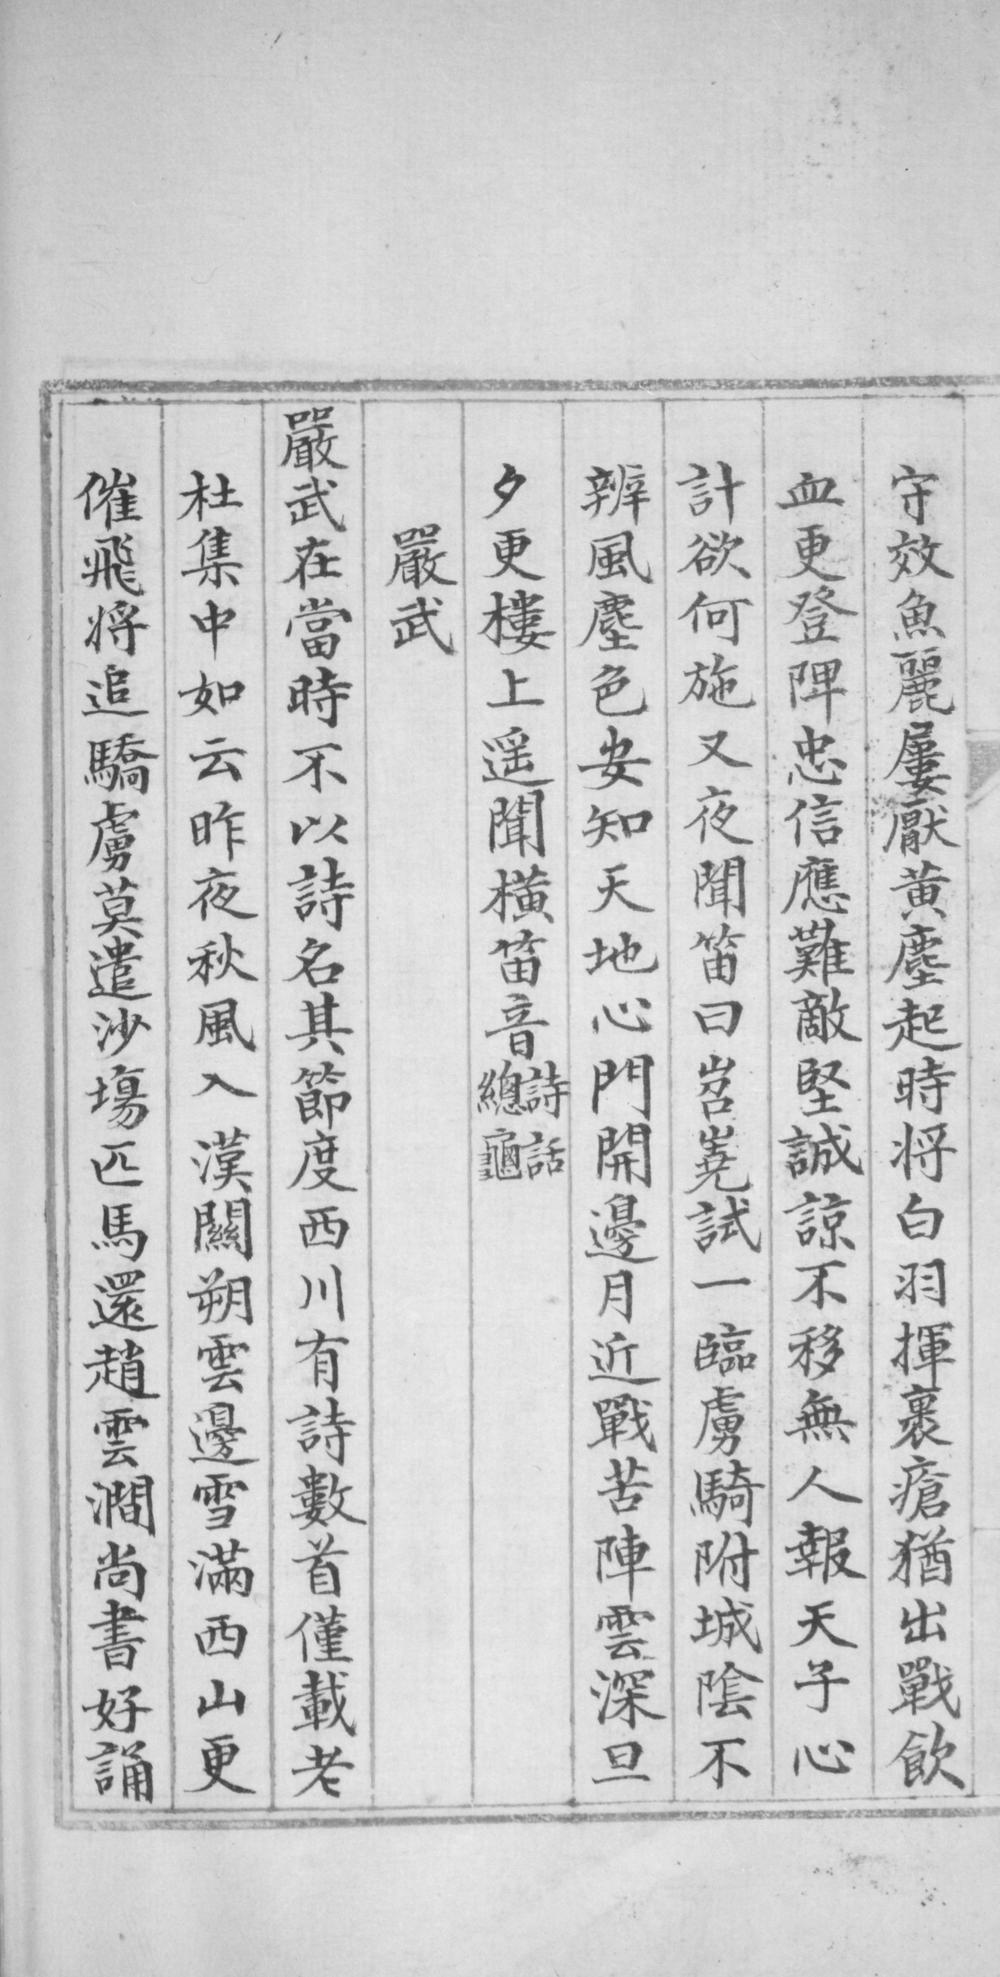 守效魚麗屢厭黃塵起時将白羽揮裹瘡猶出戰飲
血更登陴忠信應難敵堅誠諒不移無人報天子心
計欲何施又夜聞笛曰岧嶤試一臨虜騎附城隂不
辨風塵色安知天地心門開邊月近戰苦陣雲深旦
夕更樓上遥聞橫笛音詩話總龜
嚴武
嚴武在當時不以詩名其節度西川有詩數首僅載老
杜集中如云昨夜秋風入漢關朔雲邊雪滿西山更
催飛将追驕虜莫遣沙塲匹馬還趙雲澗尚書好誦